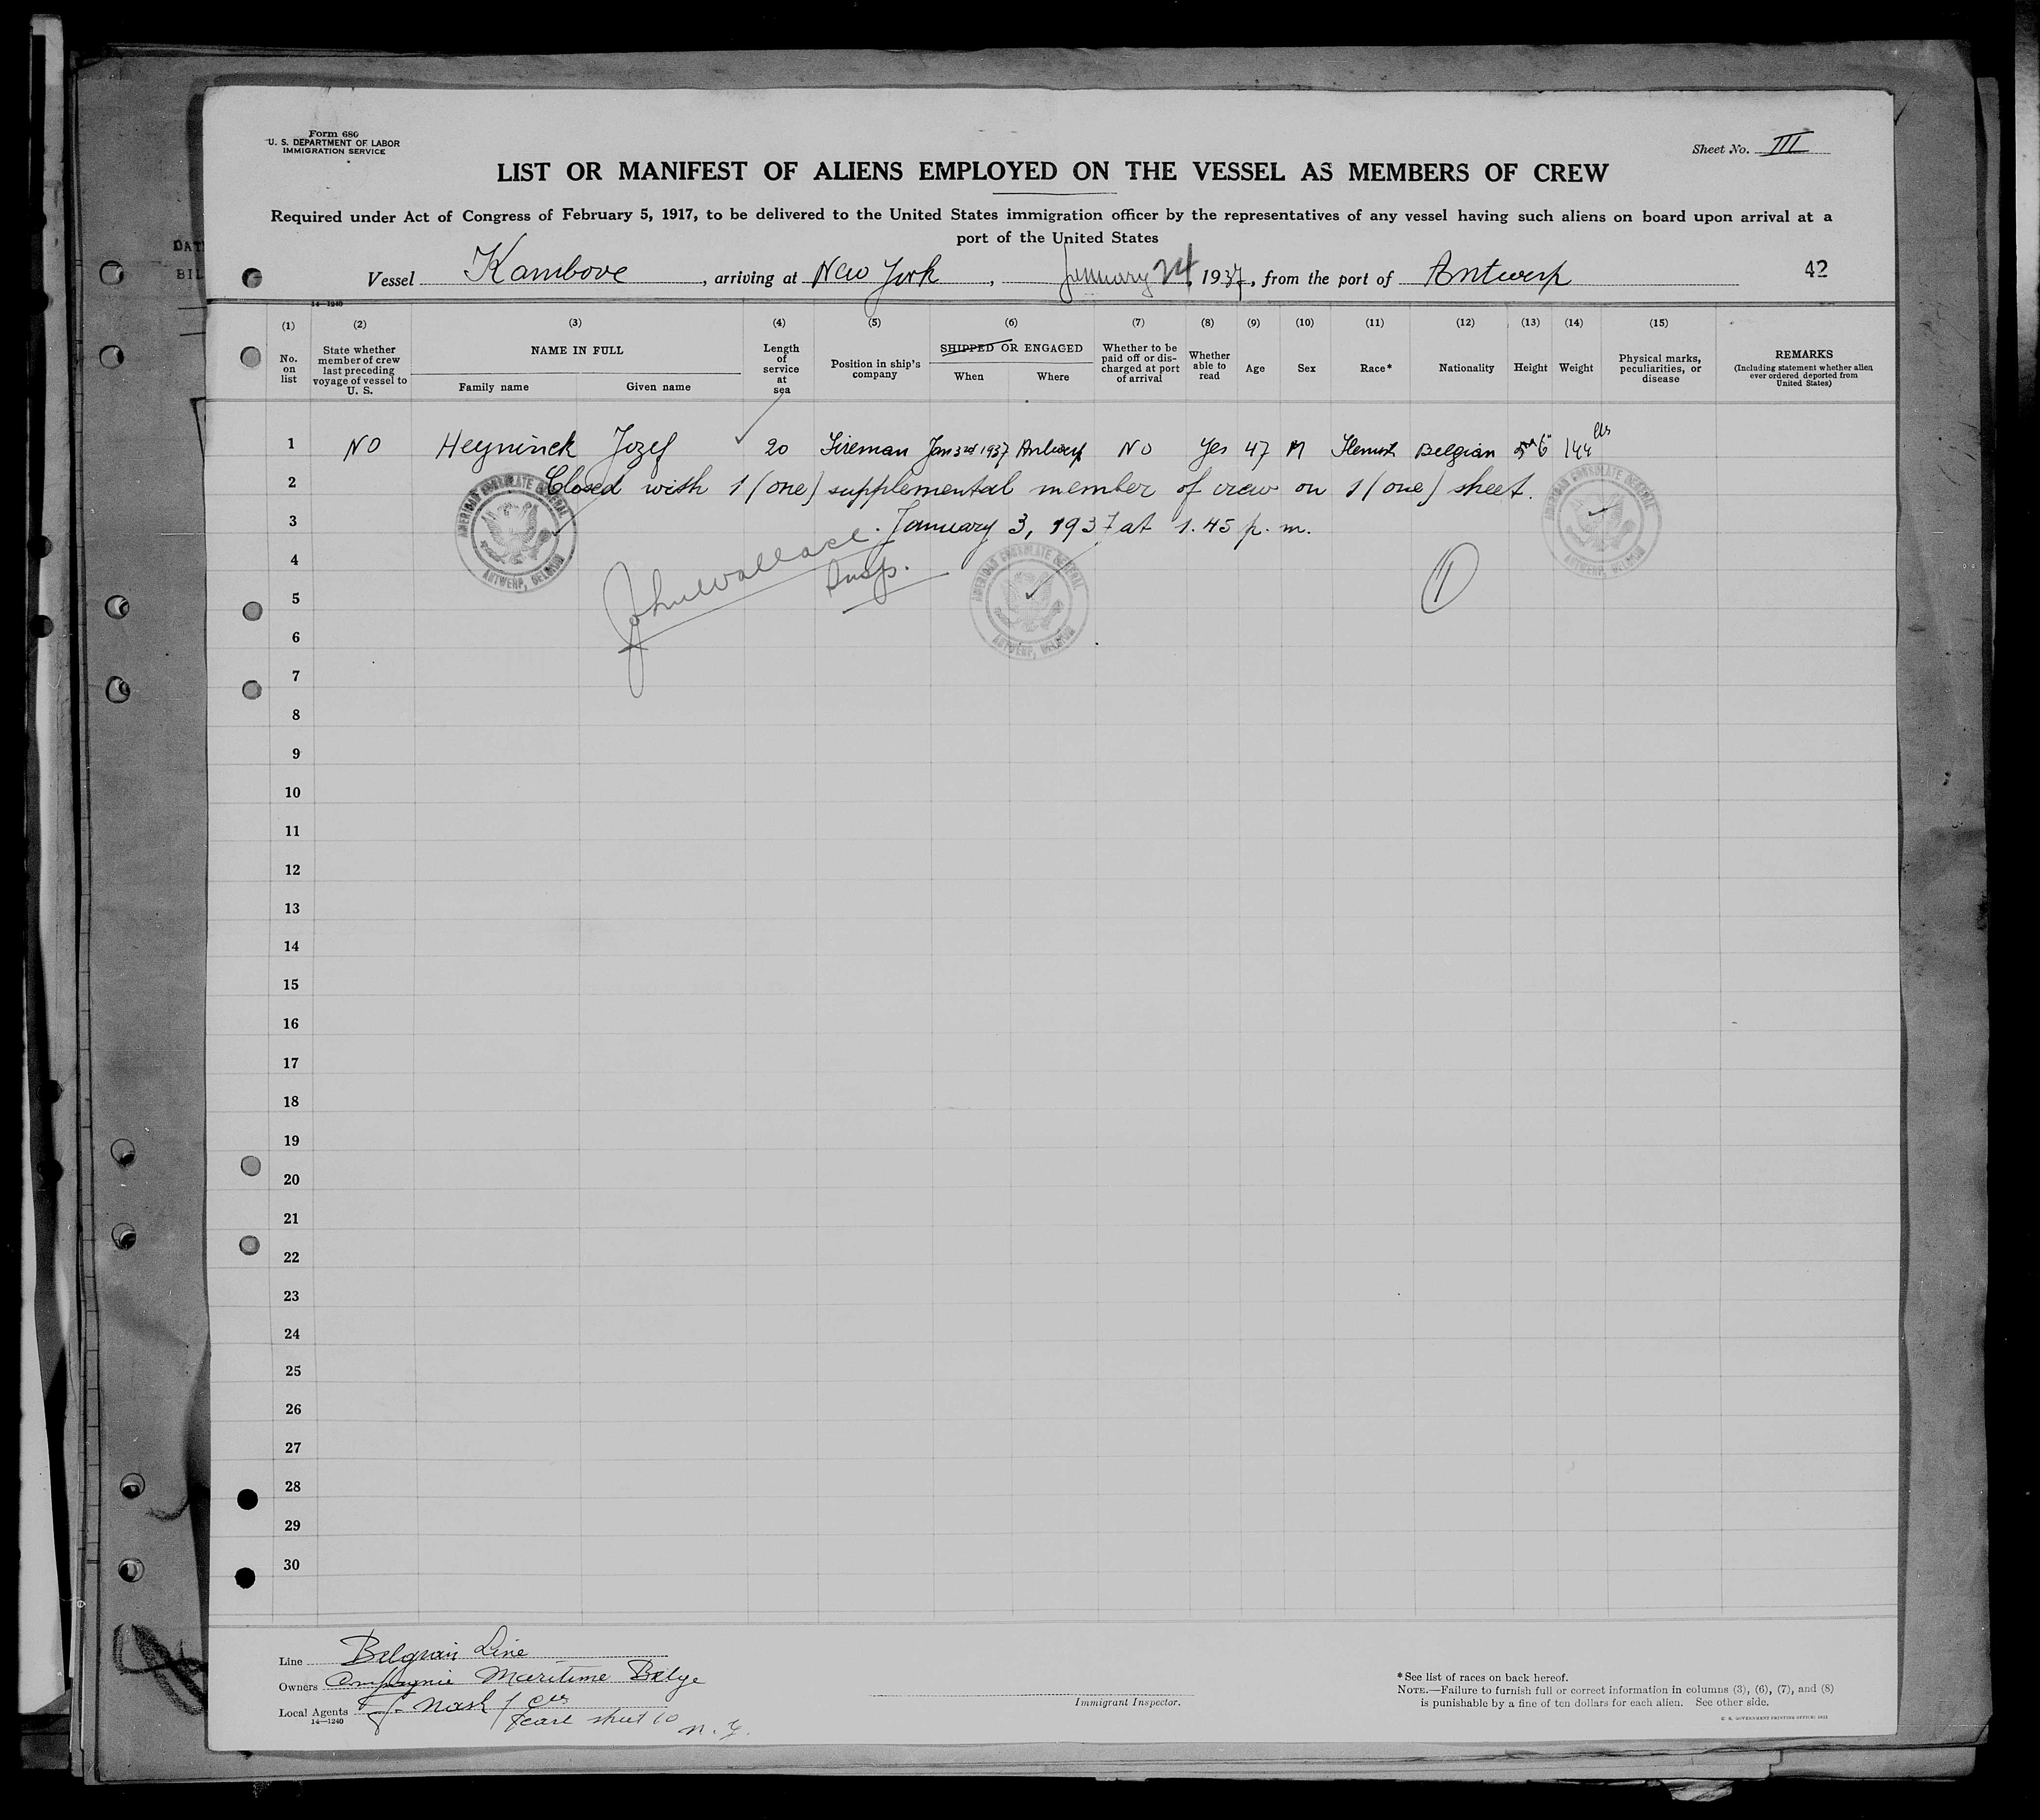 Form 680
U. S. DEPARTMENT OF LABOR
IMMIGRATION SERVICE
Sheet No. III
LIST OR MANIFEST OF ALIENS EMPLOYED ON THE VESSEL AS MEMBERS OF CREW
Required under Act of Congress of February 5, 1917, to be delivered to the United States immigration officer by the representatives of any vessel having such aliens on board upon arrival at a
port of the United States
Vessel Kambove, arriving at New York, January 24, 1937, from the port of Antwerp
42
14—1240
(1) (2) (3) (4) (5) (6) (7) (8) (9) (10) (11) (12) (13) (14) (15)
No. on list
State whether member of crew last preceding voyage of vessel to U. S.
NAME IN FULL
Family name Given name
Length of service at sea
Position in ship's company
SHIPPED OR ENGAGED
When Where
Whether to be paid off or discharged at port of arrival
Whether able to read
Age
Sex
Race*
Nationality
Height
Weight
Physical marks, peculiarities, or disease
REMARKS
(Including statement whether alien ever ordered deported from United States)
1 NO Heyninck Jozef 20 Fireman Jan 3rd 1937 Antwerp NO Yes 47 M Flemish Belgian 5 6" 144 lbs
2 Closed with 1 (one) supplemental member of crew on 1 (one) sheet.
3 January 3, 1937 at 1.45 p. m.
AMERICAN CONSULATE GENERAL
ANTWERP, BELGIUM
AMERICAN CONSULATE GENERAL
ANTWERP, BELGIUM
AMERICAN CONSULATE GENERAL
ANTWERP, BELGIUM
John Wallace
Insp.
1
4
5
6
7
8
9
10
11
12
13
14
15
16
17
18
19
20
21
22
23
24
25
26
27
28
29
30
Line Belgian Line
Owners Compagnie Maritime Belge
Local Agents F. Nash
Pearl street 10 N. Y.
14—1240
Immigrant Inspector.
* See list of races on back hereof.
NOTE.—Failure to furnish full or correct information in columns (3), (6), (7), and (8)
is punishable by a fine of ten dollars for each alien. See other side.